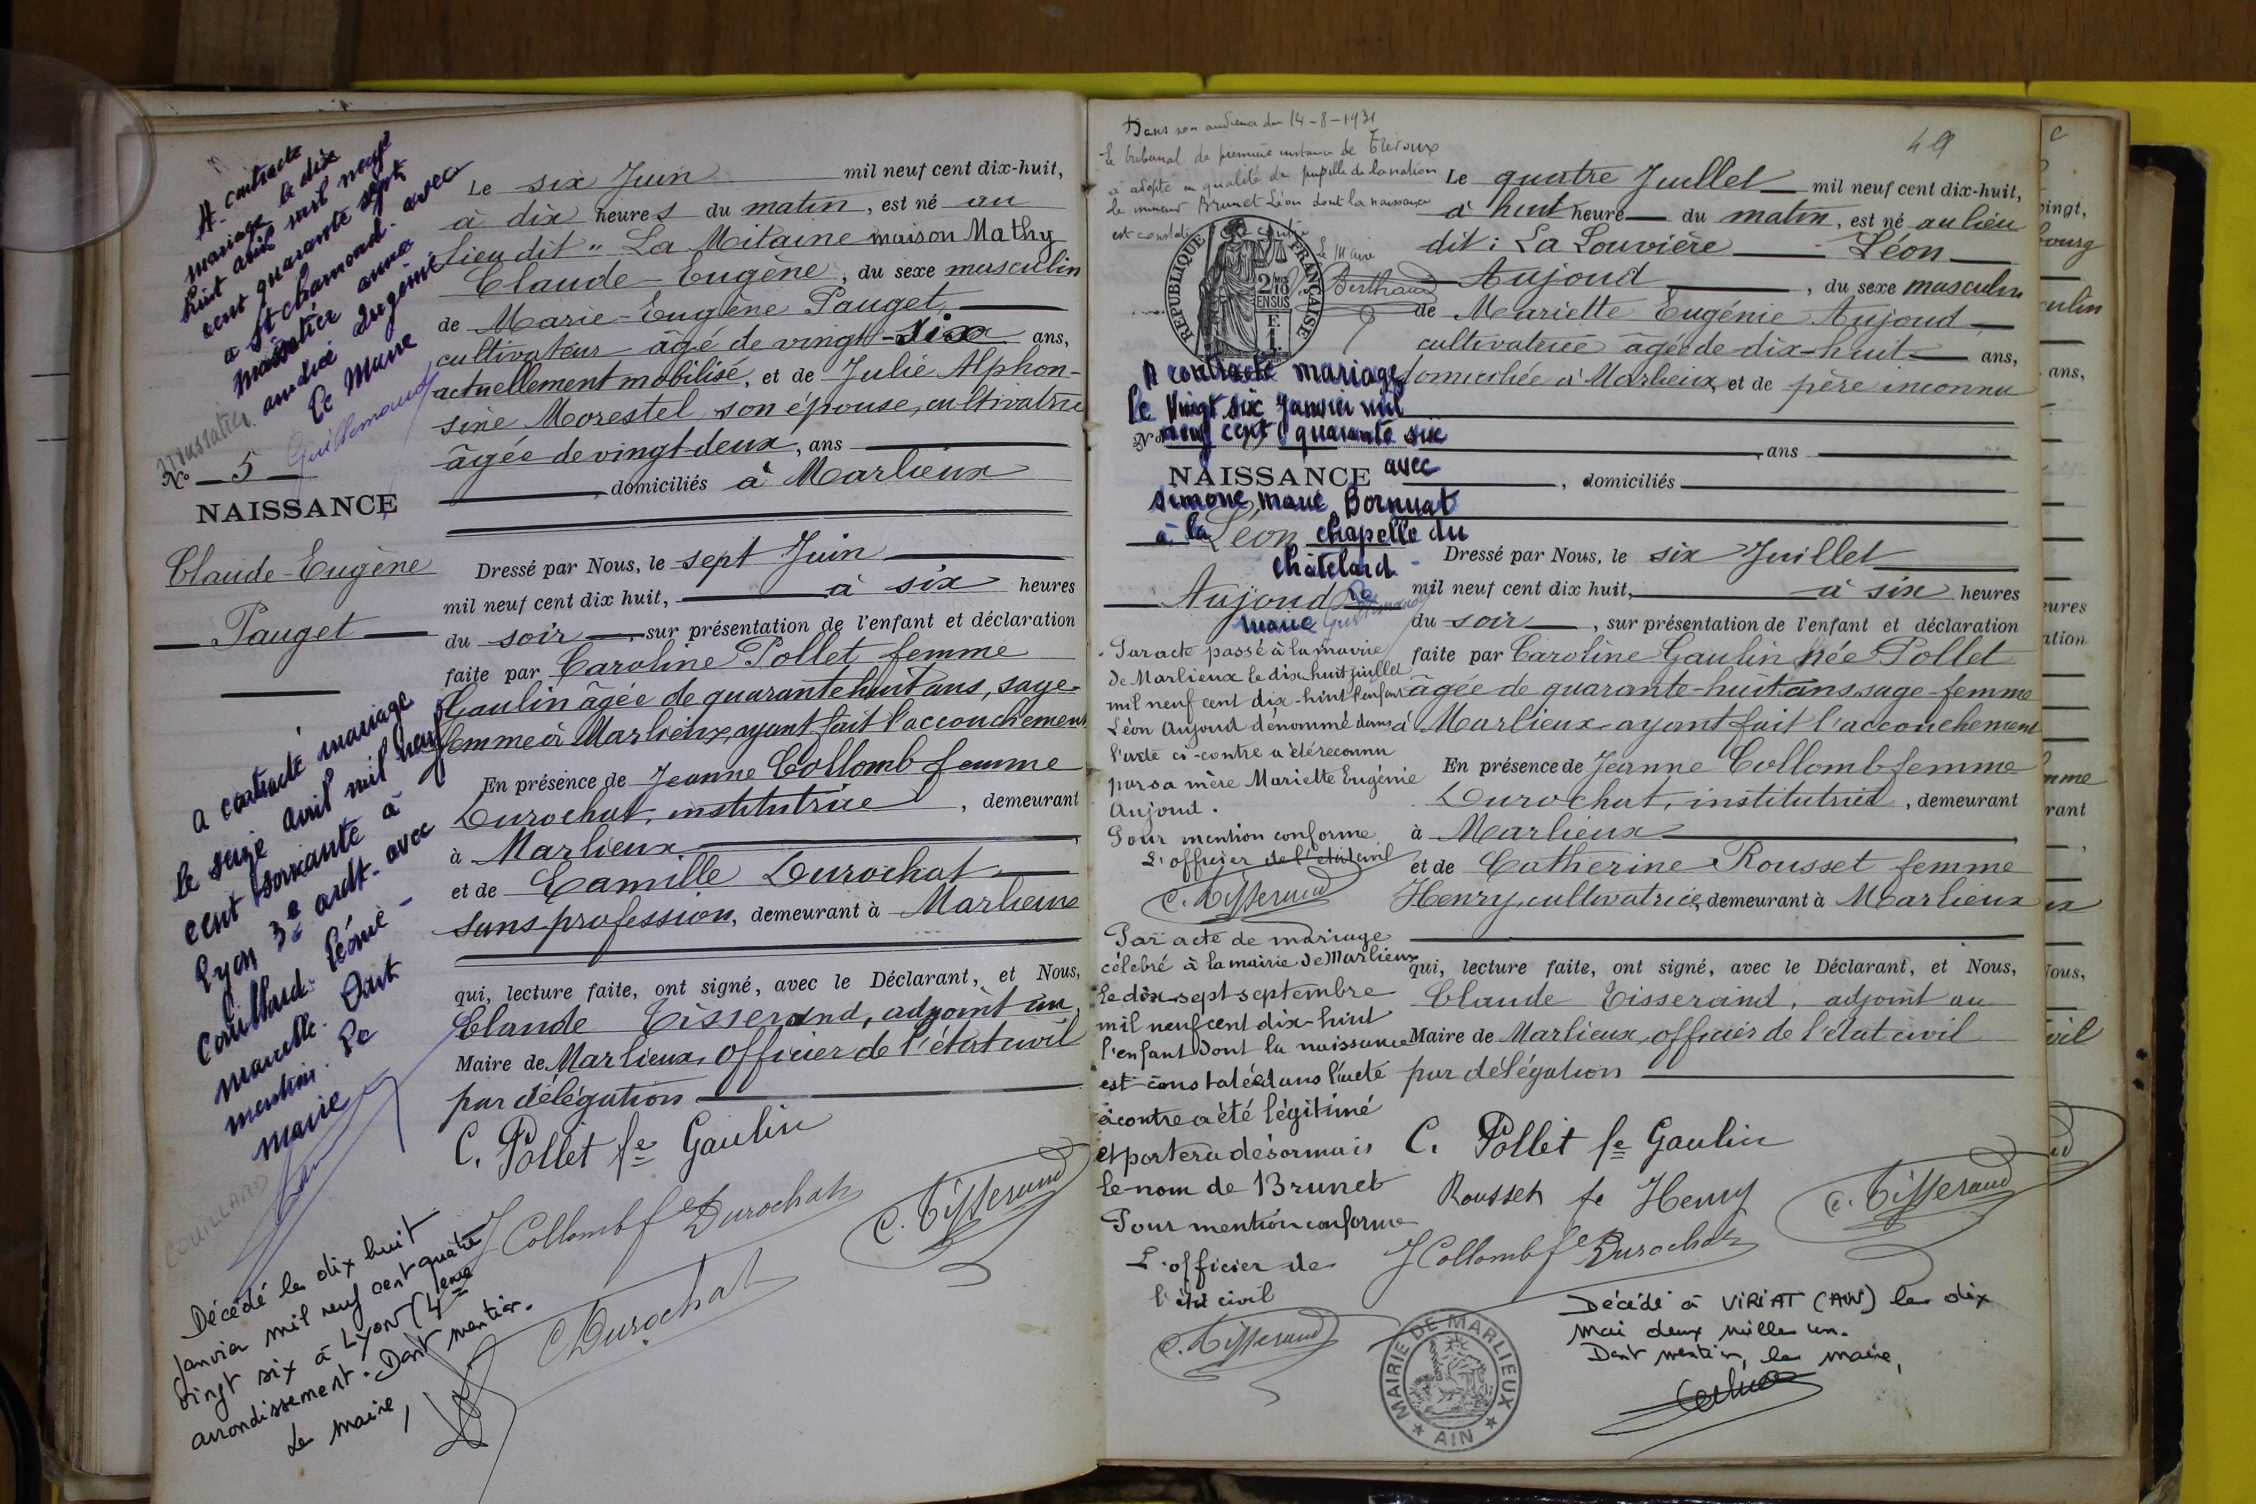 A contracté
mariage le dix
huit avril mil neuf
cent quarante sept
à St chamond. avec
anna
andréa Eugénie
Le Maire
Guillemaud
Nº 5
NAISSANCE
Claude-Eugène
Pauget
a contracté mariage
le seize avril mil neuf
cent soixante à
Lyon 3e ardt. avec
Couillard Léonie
marcelle. Dont
mention. Le
maire
COUILLARD
Décédé le dix huit
Janvier mil neuf cent quatre
vingt six à Lyon (4ème
arrondissement. Dont mention.
Le maire,
Le six Juin mil neuf cent dix-huit,
à dix heures du matin, est né au
lieu dit " La Mitaine maison Mathy
Claude-Eugène, du sexe masculin
de Marie-Eugène Pauget
cultivateur âgé de vingt-six ans,
actuellement mobilisé, et de Julie Alphon-
sine Morestel, son épouse, cultivatrice
âgée de vingt-deux, ans
domiciliés à Marlieux
Dressé par Nous, le sept Juin
mil neuf cent dix huit, à six heures
du soir, sur présentation de l'enfant et déclaration
faite par Caroline Pollet femme
Gaulin âgée de quarante huit ans, sage-
femme à Marlieux, ayant fait l'accouchement
En présence de Jeanne Collomb femme
Durochat, institutrice, demeurant
à Marlieux
et de Camille Durochat
sans profession, demeurant à Marlieux
qui, lecture faite, ont signé, avec le Déclarant, et Nous,
Claude Tisserand, adjoint au
Maire de Marlieux, officier de l'état civil
par délégation
C. Pollet fe Gaulin
J Collomb fe Durochat
C. Tisserand
C Durochat
49
Dans son audience du 14-8-1931
le tribunal de première instance de Trévoux
a adopté en qualité de pupille de la nation
le mineur Brunet Léon dont la naissance
est constatée ci-contre
Le Maire
Berthaud
RÉPUBLIQUE FRANÇAISE
A contracté mariage
le vingt six Janvier mil
neuf cent quarante six
Nº
NAISSANCE avec
Simone, marie Bornuat
à la chapelle du
Châtelard
Léon
Aujoud
Le
maire
Par acte passé à la mairie
de Marlieux le dix huit juillet
mil neuf cent dix-huit l'enfant
Léon Aujoud dénommé dans
l'acte ci-contre a été reconnu
par sa mère Mariette Eugénie
Aujoud.
Pour mention conforme
L'officier de l'état civil
C. Tisserand
Par acte de mariage
célébré à la mairie de Marlieux
le dix-sept septembre
mil neuf cent dix-huit
l'enfant dont la naissance
est constatée dans l'acte
ci contre a été légitimé
et portera désormais
le nom de Brunet
Pour mention conforme
L'officier de
l'état civil
C. Tisserand
Le quatre Juillet mil neuf cent dix-huit,
à huit heure du matin, est né au lieu
dit : La Louvière Léon
Aujoud, du sexe masculin
de Mariette Eugénie Aujoud
cultivatrice âgée de dix-huit ans,
domiciliée à Marlieux, et de père inconnu
, ans
, domiciliés
Dressé par Nous, le six Juillet
mil neuf cent dix huit, à six heures
du soir, sur présentation de l'enfant et déclaration
faite par Caroline Gaulin née Pollet
âgée de quarante-huit ans sage-femme
à Marlieux ayant fait l'accouchement
En présence de Jeanne Collomb femme
Durochat, institutrice, demeurant
à Marlieux
et de Catherine Rousset femme
Henry, cultivatrice, demeurant à Marlieux
qui, lecture faite, ont signé, avec le Déclarant, et Nous,
Claude Tisserand, adjoint au
Maire de Marlieux, officier de l'état civil
par délégation
C. Pollet fe Gaulin
Rousset fe Henry
C. Tisserand
J Collomb fe Durochat
MAIRIE DE MARLIEUX
AIN
Décédé à VIRIAT (AIN) le dix
mai deux mille un.
Dont mention, le maire,